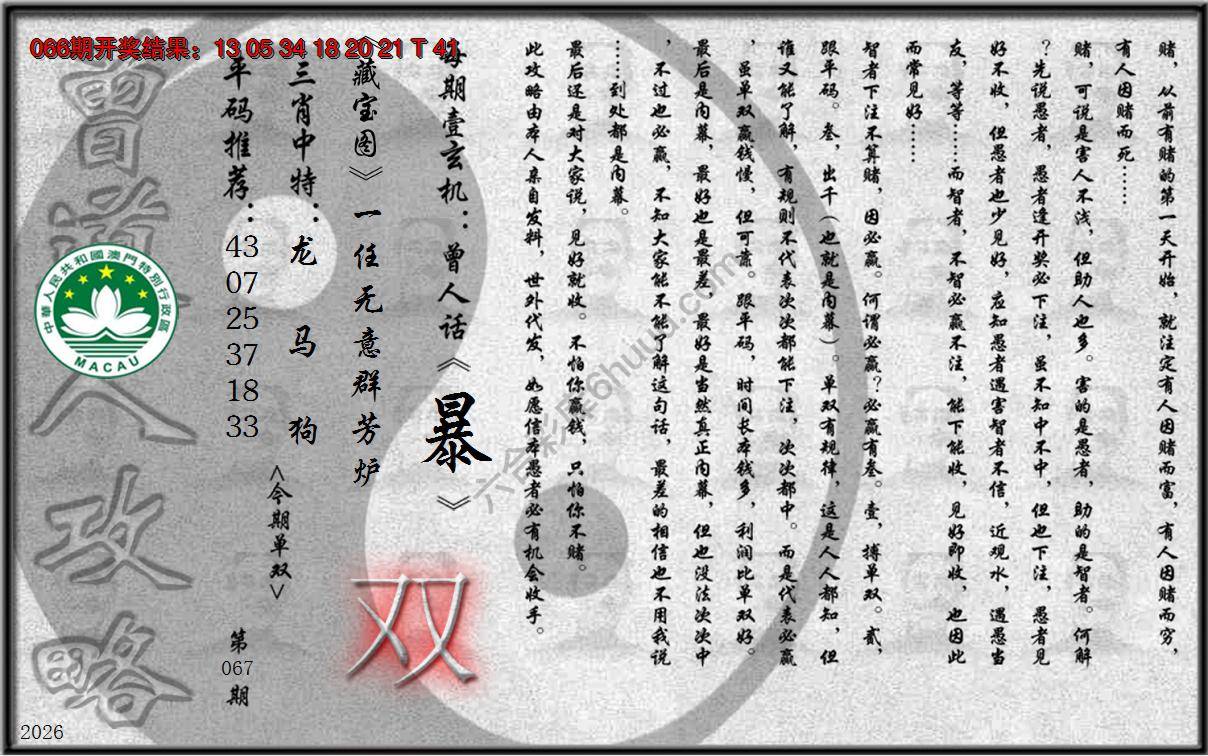 066期开奖结果：13 05 34 18 20 21 T 41
赌，从前有赌的第一天开始，就注定有人因赌而富，有人因赌而穷，
有人因赌而死……
赌，可说是害人不浅，但助人也多。害的是愚者，助的是智者。何解
？先说愚者，愚者逢开奖必下注，虽不知中不中，但也下注，愚者见
好不收，但愚者也少见好，应知愚者遇害智者不信，近观水，遇愚当
友，等等……而智者，不智必赢不注，能下能收，见好即收，也因此
而常见好……
智者下注不算赌，因必赢。何谓必赢？必赢有叁。壹，搏单双。贰，
跟平码。叁，出千（也就是内幕）。单双有规律，这是人人都知，但
谁又能了解，有规则不代表次次都能下注，次次都中。而是代表必赢
，虽单双赢钱慢，但可靠。跟平码，时间长本钱多，利润比单双好。
最后是内幕，最好也是最差，最好是当然真正内幕，但也没法次次中
，不过也必赢，不知大家能不能了解这句话，最差的相信也不用我说
……到处都是内幕。
最后还是对大家说，见好就收。不怕你赢钱，只怕你不赌。
此攻略由本人亲自发料，世外代发，如愿信本愚者必有机会收手。
每期壹玄机：曾人话《暴》
《藏宝图》一任无意群芳炉
三肖中特：龙 马 狗
平码推荐：43 07 25 37 18 33
<今期单双>
双
第067期
曾道人攻略
中華人民共和國澳門特別行政區
MACAU
2026
六合彩库6huuu.com